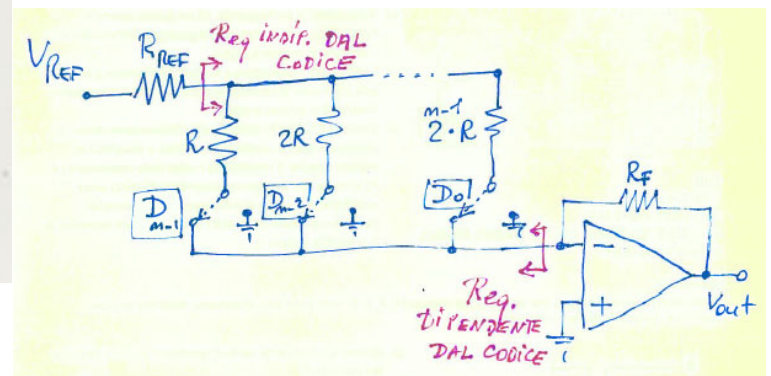 V_REF
R_REF
Req indip. DAL
CODICE
R
2R
2^{n-1}·R
D_{n-1}
D_{n-2}
D_0
R_F
−
+
Vout
Req.
DIPENDENTE
DAL CODICE